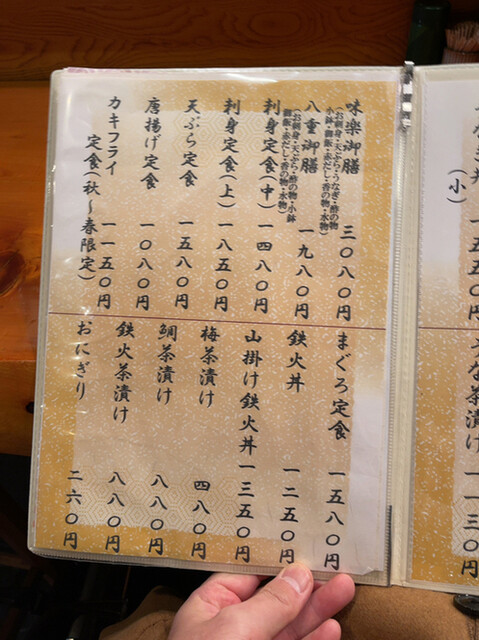 うな茶漬け 一一三〇円
（小） 一五五〇円
味楽御膳 三〇八〇円
（お刺身・天ぷら・うなぎ・酢の物
小鉢・御飯・赤だし・香の物・水物）
八重御膳 一九八〇円
（お刺身・天ぷら・酢の物・小鉢
御飯・赤だし・香の物・水物）
刺身定食（中） 一四八〇円
刺身定食（上） 一八五〇円
天ぷら定食 一五八〇円
唐揚げ定食 一〇八〇円
カキフライ
定食（秋～春限定） 一一五〇円
まぐろ定食 一五八〇円
鉄火丼 一二五〇円
山掛け鉄火丼 一三五〇円
梅茶漬け 四八〇円
鯛茶漬け 八八〇円
鉄火茶漬け 八八〇円
おにぎり 二六〇円